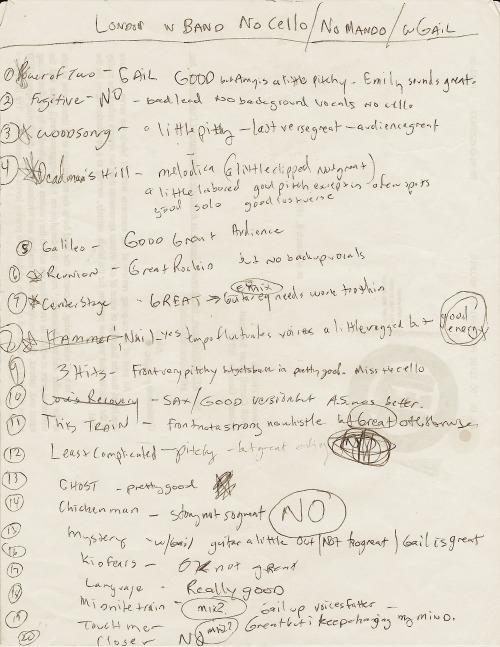 LONDON W BAND NO CELLO/NO MANDO/W GAIL
① Power of Two - GAIL GOOD but Amy is a little pitchy - Emily sounds great.
② Fugitive - NO - bad lead no background vocals no cello
③ woodsong - a little pitchy - last verse great - audience great
4 Deadman's Hill - melodica (a little clipped not great)
a little labored good pitch except in a few spots
good solo good last verse
⑤ Galileo - GOOD Great Audience
⑥ Reunion - Great Rockin but no backup vocals
⑦ Center Stage - GREAT → Guitar eq needs work too thin
mix
Hammer, Nail - yes tempo fluctuates voices a little ragged but good energy
9 3 Hits - Front very pitchy but gets back in pretty good. Miss the cello
⑩ Love's Recovery - SAX/GOOD version but A.S. was better.
⑪ This TRAIN - front not a strong no whistle but Great otherwise
⑫ Least Complicated - pitchy - but great
⑬ GHOST - pretty good
⑭ Chickenman - strong not so great NO
15 Mystery - w/Gail guitar a little out (NOT too great) Gail is great
16 Kid fears - OK not great
17 Language - Really good
18 Midnite train - mix? Gail up voices fatter -
19 Touch me mix? Great but i keep changing my mind.
20 Closer NO